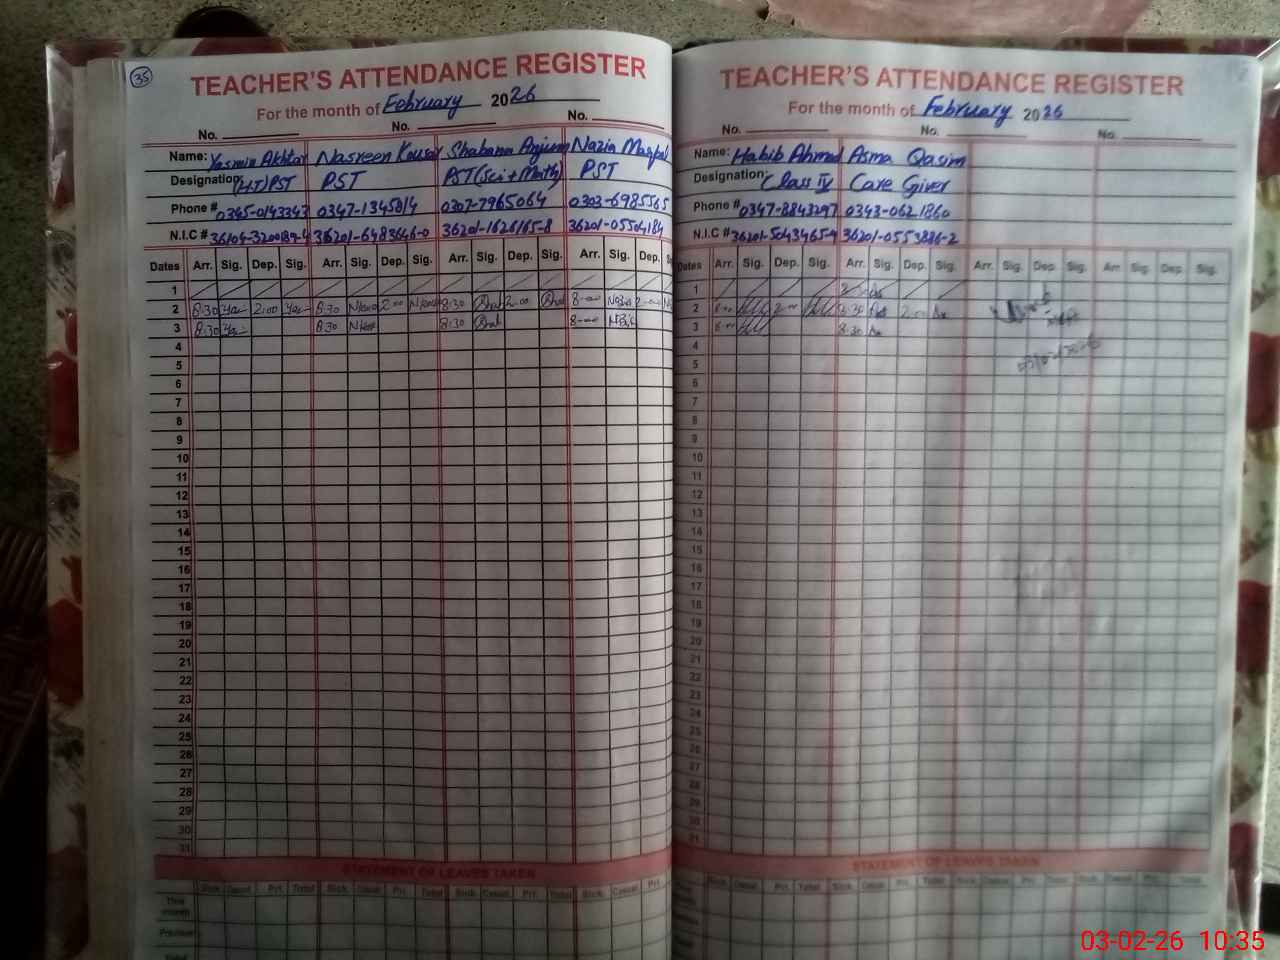 35
TEACHER'S ATTENDANCE REGISTER
For the month of February 2026
No. No. No.
Name: Yasmin Akhtar Nasreen Kousar Shabana Anjum Nazia Maqbal
Designation: (HT) PST PST PST (Sci + Math) PST
Phone # 0345-0143343 0347-1345014 0307-7965064 0303-6985565
N.I.C # 36104-3200892-4 36201-6483646-0 36201-1626165-8 36201-05504184
Dates Arr. Sig. Dep. Sig. Arr. Sig. Dep. Sig. Arr. Sig. Dep. Sig. Arr. Sig. Dep.
1
2 8:30 2:00 8:30 2:00 8:30 2:00 8-00 2-00
3 8:30 8:30 8:30 8-00
4
5
6
7
8
9
10
11
12
13
14
15
16
17
18
19
20
21
22
23
24
25
26
27
28
29
30
31
STATEMENT OF LEAVES TAKEN
Sick Casual Pri. Total Sick. Casual Pri. Total Sick Casual Pri. Total Sick. Casual Pri.
This month
Previous
Total
TEACHER'S ATTENDANCE REGISTER
For the month of February 2026
No. No. No.
Name: Habib Ahmad Asma Qasim
Designation: Class IV Care Giver
Phone # 0347-8843297 0343-0621860
N.I.C # 36201-5043465-9 36201-0553886-2
Dates Arr. Sig. Dep. Sig. Arr. Sig. Dep. Sig. Arr. Sig. Dep. Sig. Arr. Sig. Dep. Sig.
1
2 8-00 2-00 8:30 2:00
3 8-00 8:30
4
5
6
7
8
9
10
11
12
13
14
15
16
17
18
19
20
21
22
23
24
25
26
27
28
29
30
31
STATEMENT OF LEAVES TAKEN
03-02-26 10:35